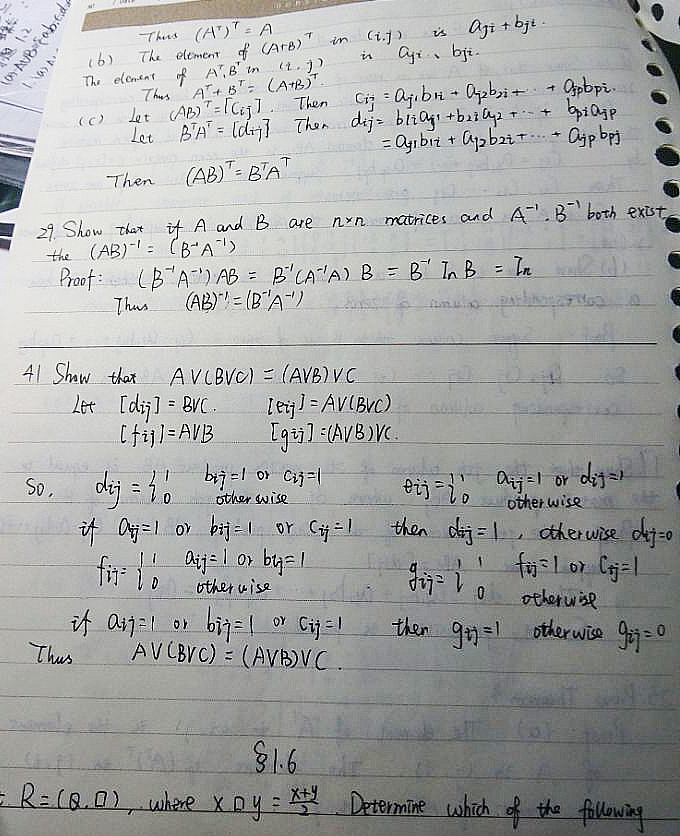 Thus (Aᵀ)ᵀ = A
(b) The element of (A+B)ᵀ in (i,j) is aji + bji.
The element of Aᵀ, Bᵀ in (i,j) is aji, bji.
Thus Aᵀ + Bᵀ = (A+B)ᵀ
(c) Let (AB)ᵀ = [cij]. Then cij = aj1b1i + aj2b2i + ··· + ajpbpi.
Let BᵀAᵀ = [dij] Then dij = b1iaj1 + b2iaj2 + ··· + bpiajp
= aj1b1i + aj2b2i + ··· + ajpbpj
Then (AB)ᵀ = BᵀAᵀ
29. Show that if A and B are n×n matrices and A⁻¹, B⁻¹ both exist
the (AB)⁻¹ = (B⁻¹A⁻¹)
Proof: (B⁻¹A⁻¹)AB = B⁻¹(A⁻¹A)B = B⁻¹InB = In
Thus (AB)⁻¹ = (B⁻¹A⁻¹)
41 Show that AV(BVC) = (AVB)VC
Let [dij] = BVC. [eij] = AV(BVC)
[fij] = AVB [gij] = (AVB)VC.
So. dij = { 1 bij=1 or cij=1 eij = { 1 aij=1 or dij=1
0 otherwise 0 otherwise
if aij=1 or bij=1 or cij=1 then dij=1, otherwise dij=0
fij = { 1 aij=1 or bij=1 gij = { 1 fij=1 or Cij=1
0 otherwise 0 otherwise
if aij=1 or bij=1 or cij=1 then gij=1 otherwise gij=0
Thus AV(BVC) = (AVB)VC.
§1.6
R = (Q, □), where x □ y = (x+y)/2. Determine which of the following